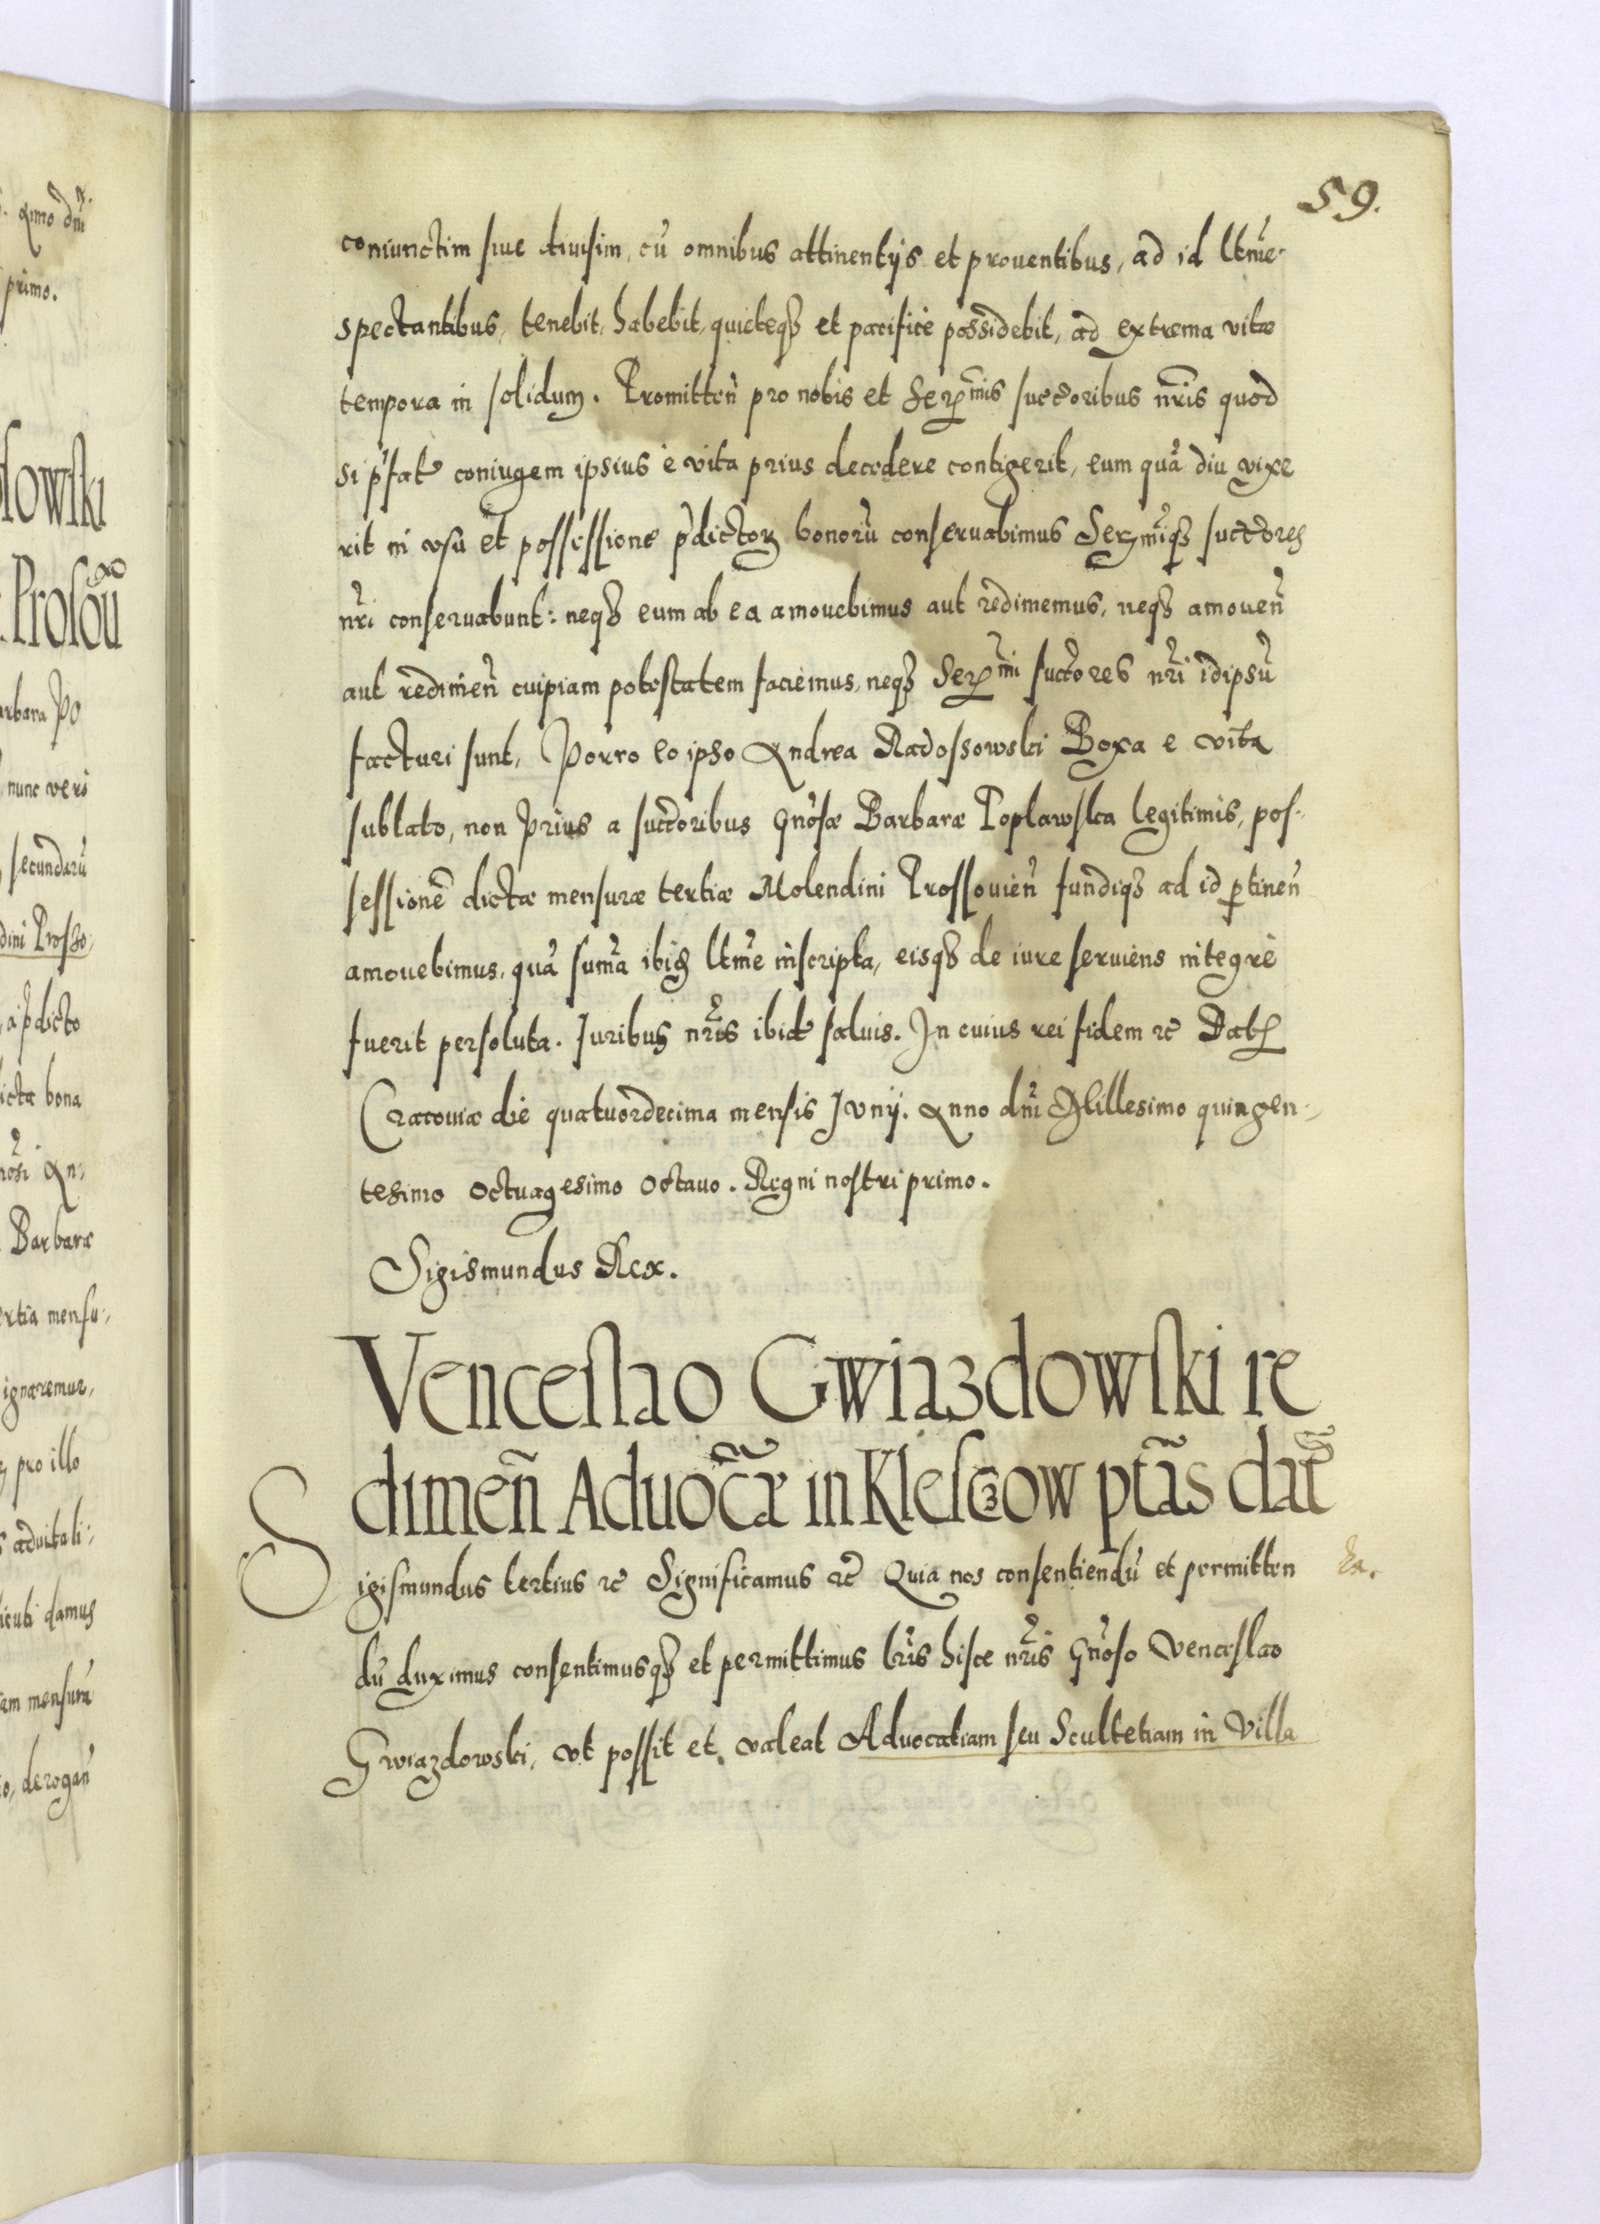 59.
coniunctim siue diuisim, cũ omnibus attinentijs et prouentibus, ad id ltme
spectantibus, tenebit, habebit, quieteqȝ et pacifice possidebit, ad extrema vitæ
tempora in solidum. Promitteñ pro nobis et Serᵐⁱˢ succoribus nr̃is quod
si p̃fatã coniugem ipsius è vita prius decedere contigerit, eum quã diu vixe
rit in vsu et possessione p̃dictoꝝ bonorũ conseruabimus Serᵐⁱqȝ succores
nr̃i conseruabunt: neqȝ eum ab ea amouebimus aut redimemus, neqȝ amoueñ
aut redimeñ cuipiam potestatem faciemus, neqȝ Serᵐⁱ succores nr̃i idipsũ
facturi sunt, Porro eo ipso Andrea Radossowski Boxa e vita
sublato, non prius a succoribus Gnõsæ Barbaræ Poplawska legitimis, pos-
sessionẽ dictæ mensuræ tertiæ Molendini Prossouieñ fundiqȝ ad id ꝑtineñ
amouebimus, quã sum̃a ibidȝ ltme inscripta, eisqȝ de iure seruiens integrè
fuerit persoluta. Iuribus nr̃is ibidẽ saluis. In cuius rei fidem ꝛc Datȝ
Cracouiæ die quatuordecima mensis Junij. Anno dñi Millesimo quingen-
tesimo octuagesimo octauo. Regni nostri primo.
Sigismundus Rex.
Venceslao Gwiazdowski re
dimeñ Aduocãæ in Kleszczow ptãs datᷣ
Sigismundus tertius ꝛc Significamus ꝛc Quia nos consentiendũ et permitten
dũ duximus consentimusqȝ et permittimus lr̃is hisce nr̃is Gnõso Venceslao
Gwiazdowski, vt possit et valeat Aduocatiam seu Scultetiam in Villa